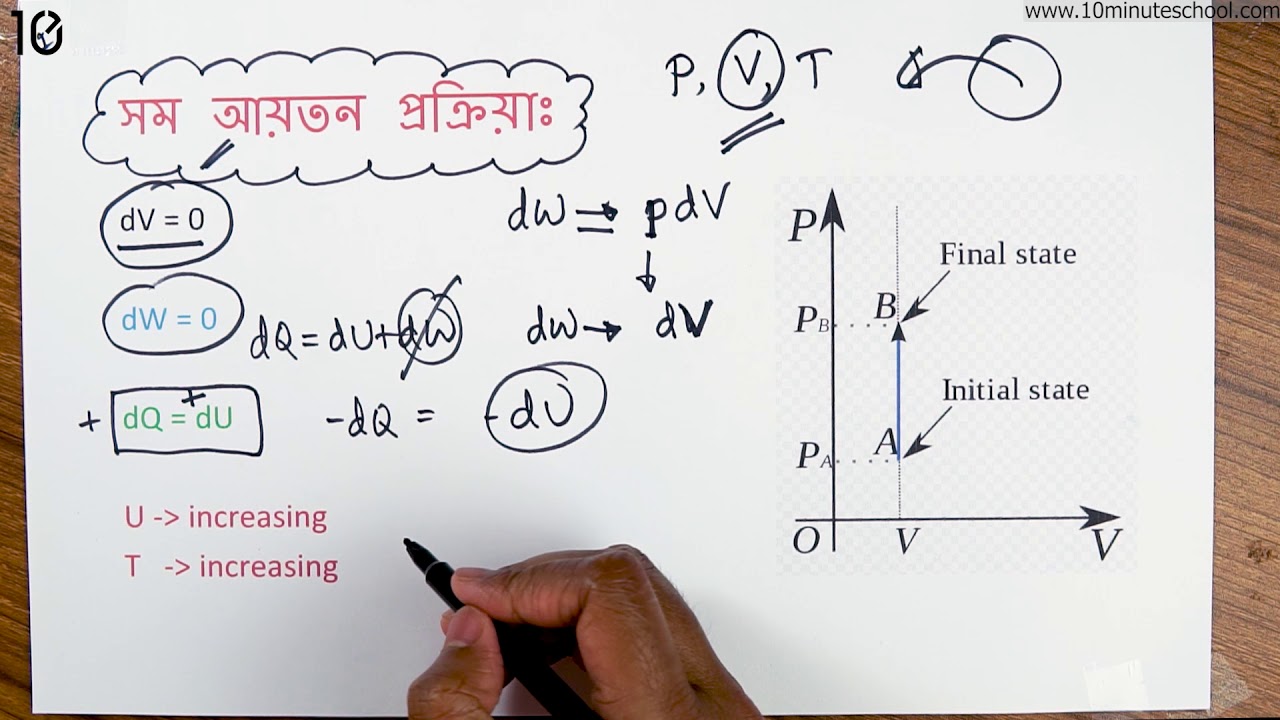 10
www.10minuteschool.com
P, V, T
সম আয়তন প্রক্রিয়াঃ
dV = 0
dW → pdV
↓
dW = 0
dQ = dU + dW
dW → dV
+ dQ = +dU
-dQ = -dU
U -> increasing
T -> increasing
P
Final state
B
P_B
Initial state
A
P_A
O
V
V